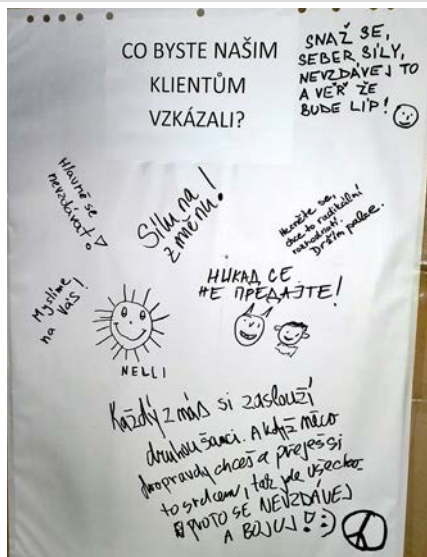 CO BYSTE NAŠIM
KLIENTŮM
VZKÁZALI?
SNAŽ SE,
SEBER SÍLY,
NEVZDÁVEJ TO
A VĚŘ ŽE
BUDE LÍP!
Hlavně se
nevzdávat!
Sílu na
změnu!
chce to radikální
rozhodnutí.
Držím palce.
Myslíme
na Vás!
НИКАД СЕ
НЕ ПРЕДАЈТЕ!
NELLI
Každý z nás si zaslouží
druhou šanci. A když něco
doopravdy chceš a přeješ si
to srdcem, tak jde všecko
PROTO SE NEVZDÁVEJ
A BOJUJ! :)